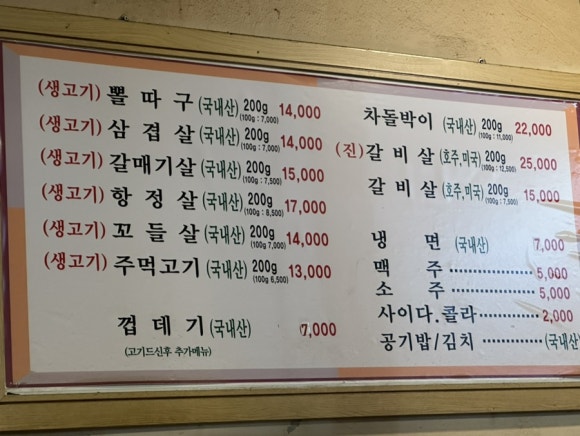 (생고기) 뽈따구 (국내산) 200g (100g : 7,000) 14,000
(생고기) 삼겹살 (국내산) 200g (100g : 7,000) 14,000
(생고기) 갈매기살 (국내산) 200g (100g : 7,500) 15,000
(생고기) 항정살 (국내산) 200g (100g : 8,500) 17,000
(생고기) 꼬들살 (국내산) 200g (100g 7,000) 14,000
(생고기) 주먹고기 (국내산) 200g (100g 6,500) 13,000
껍데기 (국내산) 7,000
(고기드신후 추가메뉴)
차돌박이 (국내산) 200g (100g : 11,000) 22,000
(진) 갈비살 (호주,미국) 200g (100g : 12,500) 25,000
갈비살 (호주,미국) 200g (100g : 7,500) 15,000
냉면 (국내산) 7,000
맥주 5,000
소주 5,000
사이다.콜라 2,000
공기밥/김치 (국내산)